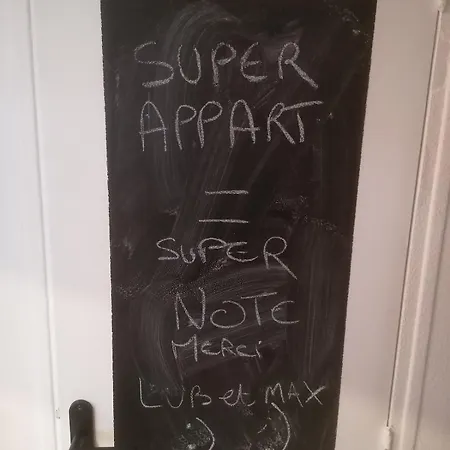 SUPER
APPART
=
SUPER
NOTE
MERCi
LUB et MAX